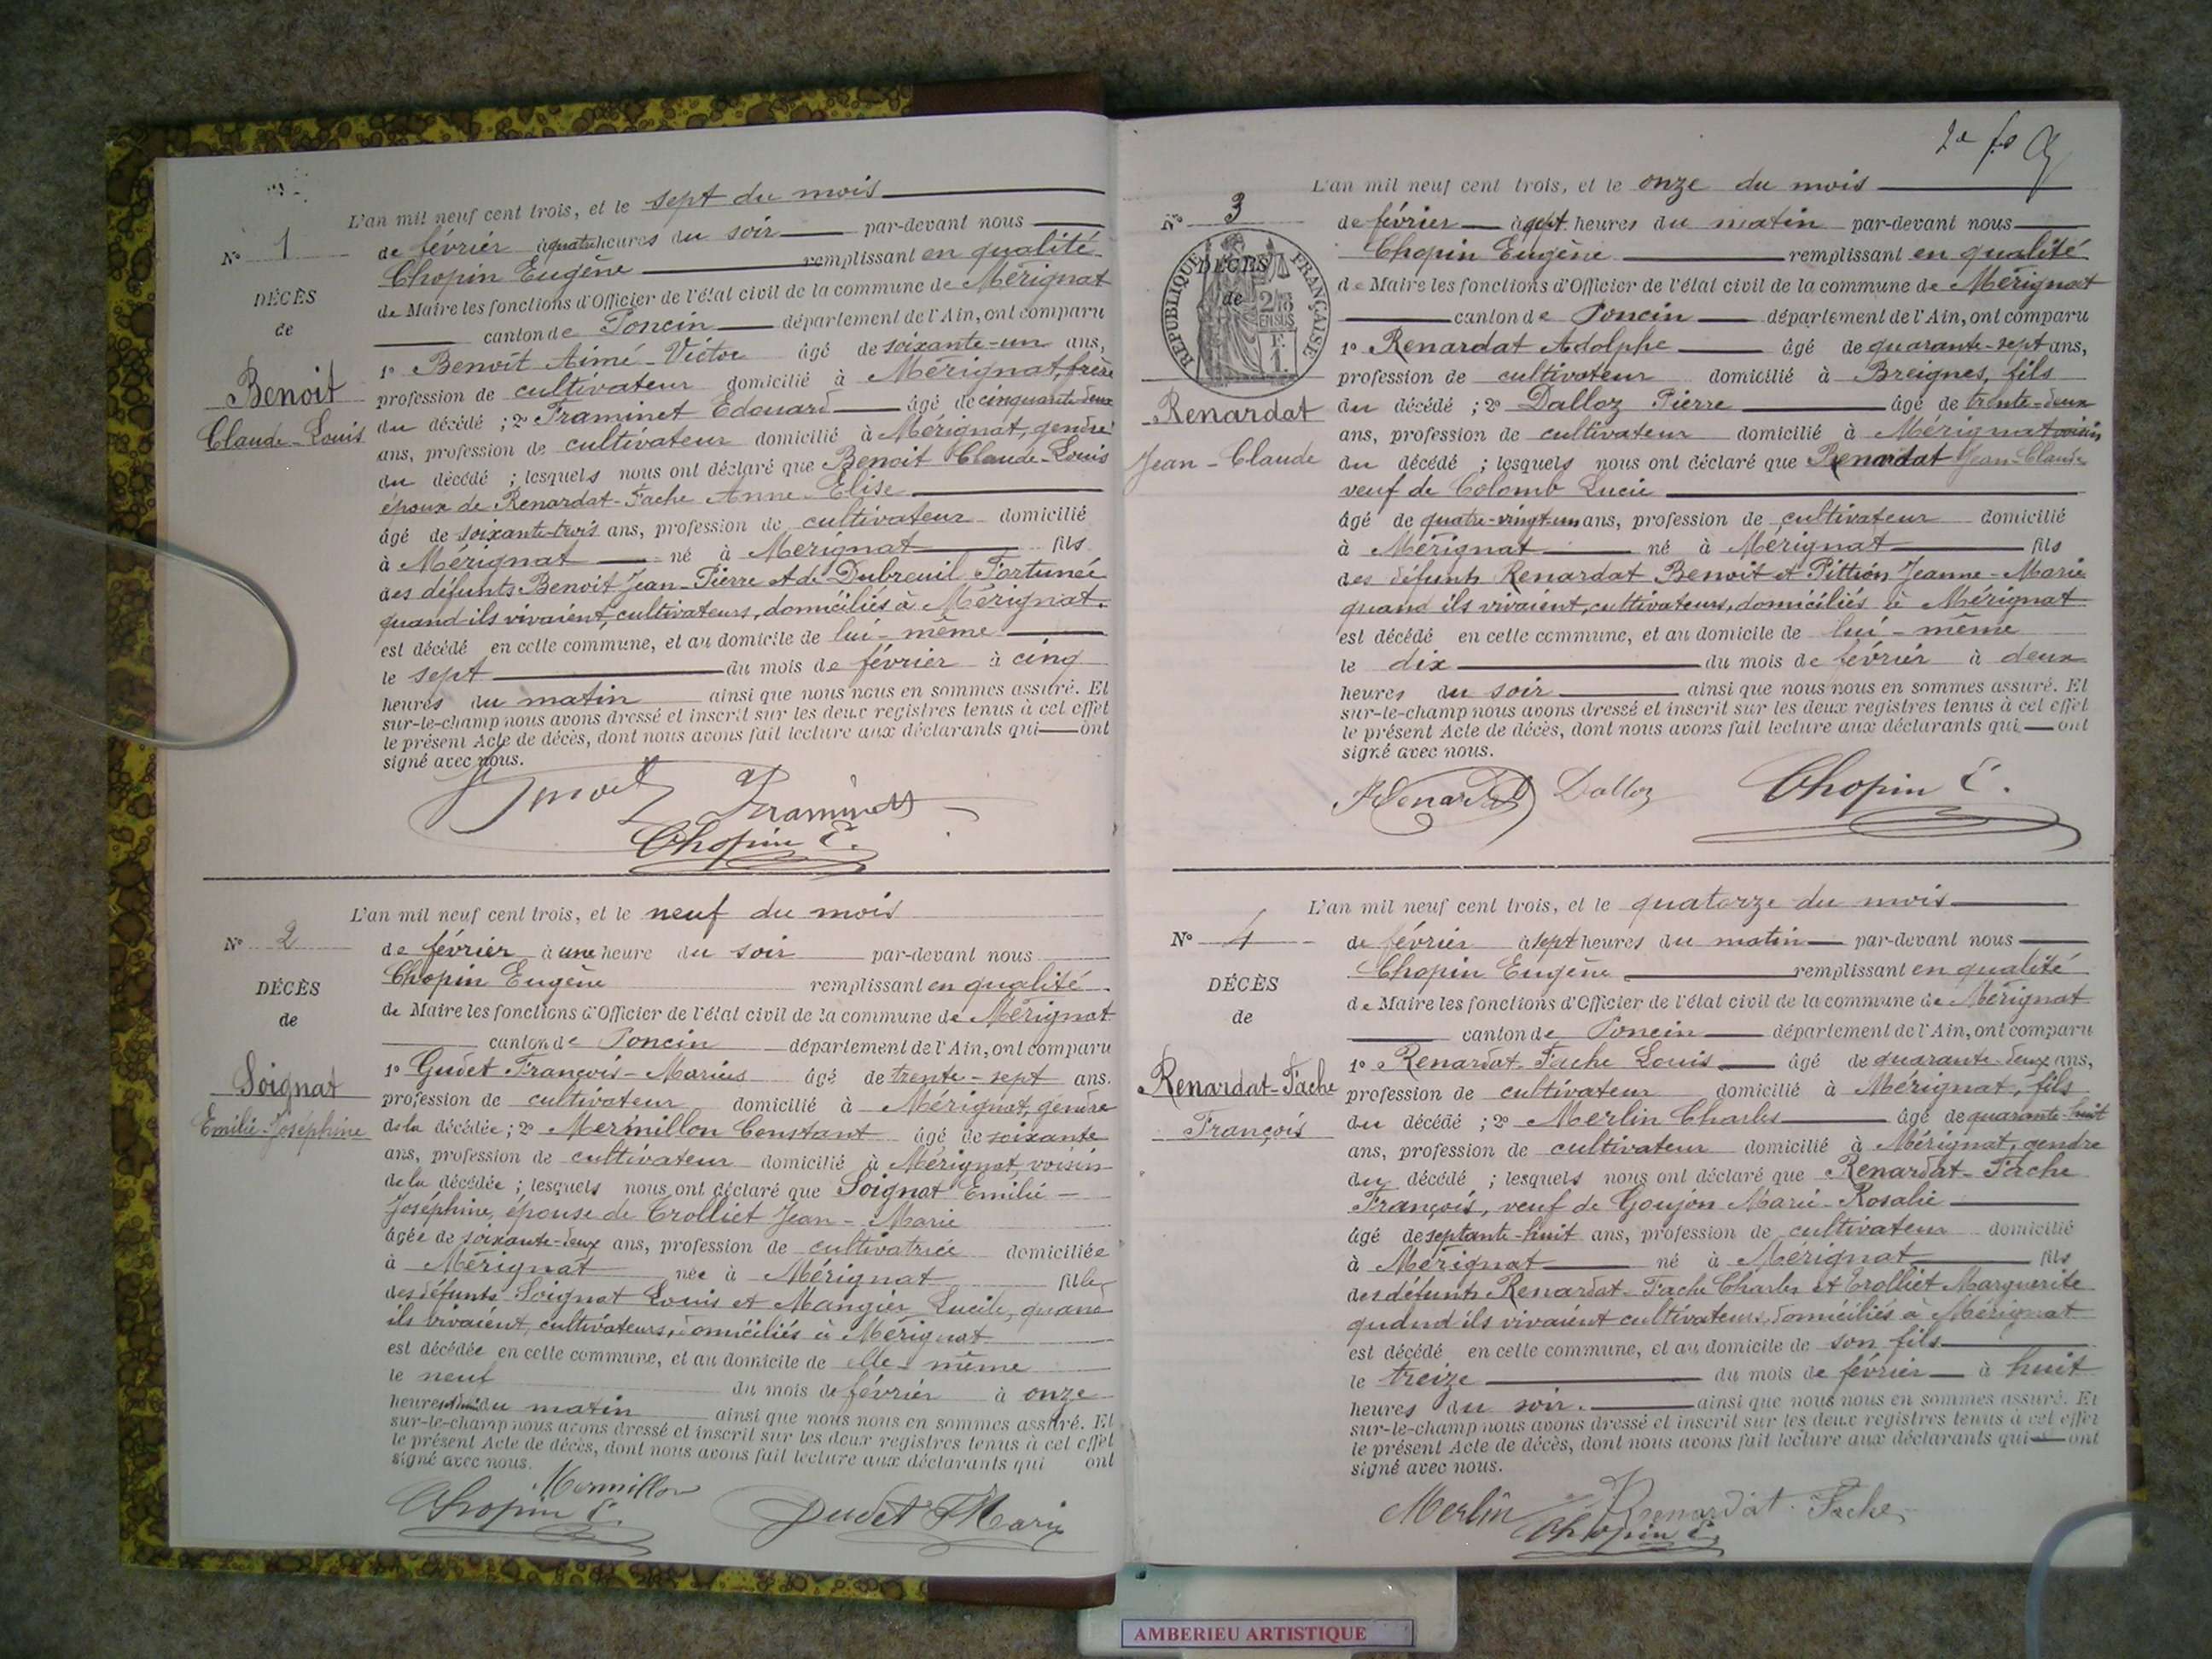 N° 1
DÉCÈS
de
Benoit
Claude-Louis
L'an mil neuf cent trois, et le sept du mois
de février à quatre heures du soir par-devant nous
Chopin Eugène remplissant en qualité
de Maire les fonctions d'Officier de l'état civil de la commune de Mérignat
canton de Poncin département de l'Ain, ont comparu
1° Benoit Aimé-Victor âgé de soixante-un ans,
profession de cultivateur domicilié à Mérignat, frère
du décédé ; 2° Praminet Edouard âgé de cinquante-deux
ans, profession de cultivateur domicilié à Mérignat, gendre
du décédé ; lesquels nous ont déclaré que Benoit Claude-Louis
époux de Renardat-Fache Anne-Elise
âgé de soixante-trois ans, profession de cultivateur domicilié
à Mérignat né à Mérignat fils
des défunts Benoit Jean-Pierre et de Dubreuil Fortunée
quand ils vivaient, cultivateurs, domiciliés à Mérignat.
est décédé en cette commune, et au domicile de lui-même
le sept du mois de février à cinq
heures du matin ainsi que nous nous en sommes assuré. Et
sur-le-champ nous avons dressé et inscrit sur les deux registres tenus à cet effet
le présent Acte de décès, dont nous avons fait lecture aux déclarants qui ont
signé avec nous.
Praminet
Chopin E.
N° 2
DÉCÈS
de
Soignat
Emilie-Joséphine
L'an mil neuf cent trois, et le neuf du mois
de février à une heure du soir par-devant nous
Chopin Eugène remplissant en qualité
de Maire les fonctions d'Officier de l'état civil de la commune de Mérignat
canton de Poncin département de l'Ain, ont comparu
1° Gudet François-Marius âgé de trente-sept ans.
profession de cultivateur domicilié à Mérignat, gendre
de la décédée ; 2° Mermillon Constant âgé de soixante
ans, profession de cultivateur domicilié à Mérignat, voisin
de la décédée ; lesquels nous ont déclaré que Soignat Emilie-
Joséphine, épouse de Trolliet Jean-Marie
âgée de soixante-deux ans, profession de cultivatrice domiciliée
à Mérignat née à Mérignat fille
des défunts Soignat Louis et Mangier Lucile, quand
ils vivaient, cultivateurs, domiciliés à Mérignat
est décédée en cette commune, et au domicile de elle-même
le neuf du mois de février à onze
heures du matin ainsi que nous nous en sommes assuré. Et
sur-le-champ nous avons dressé et inscrit sur les deux registres tenus à cet effet
le présent Acte de décès, dont nous avons fait lecture aux déclarants qui ont
signé avec nous.
Mermillon
Chopin E. Gudet F Mari
2e fo
N° 3
DÉCÈS
de
RÉPUBLIQUE FRANÇAISE
2/10 EN SUS
1 F.
Renardat
Jean-Claude
L'an mil neuf cent trois, et le onze du mois
de février à sept heures du matin par-devant nous
Chopin Eugène remplissant en qualité
de Maire les fonctions d'Officier de l'état civil de la commune de Mérignat
canton de Poncin département de l'Ain, ont comparu
1° Renardat Adolphe âgé de quarante-sept ans,
profession de cultivateur domicilié à Breignes, fils
du décédé ; 2° Dalloz Pierre âgé de trente-deux
ans, profession de cultivateur domicilié à Mérignat voisin
du décédé ; lesquels nous ont déclaré que Renardat Jean-Claude
veuf de Colomb Lucie
âgé de quatre-vingt-un ans, profession de cultivateur domicilié
à Mérignat né à Mérignat fils
des défunts Renardat Benoit et Pittion Jeanne-Marie
quand ils vivaient, cultivateurs, domiciliés à Mérignat
est décédé en cette commune, et au domicile de lui-même
le dix du mois de février à deux
heures du soir ainsi que nous nous en sommes assuré. Et
sur-le-champ nous avons dressé et inscrit sur les deux registres tenus à cet effet
le présent Acte de décès, dont nous avons fait lecture aux déclarants qui ont
signé avec nous.
Renardat Dalloz Chopin E.
N° 4
DÉCÈS
de
Renardat-Fache
François
L'an mil neuf cent trois, et le quatorze du mois
de février à sept heures du matin par-devant nous
Chopin Eugène remplissant en qualité
de Maire les fonctions d'Officier de l'état civil de la commune de Mérignat
canton de Poncin département de l'Ain, ont comparu
1° Renardat-Fache Louis âgé de quarante-deux ans,
profession de cultivateur domicilié à Mérignat, fils
du décédé ; 2° Merlin Charles âgé de quarante-huit
ans, profession de cultivateur domicilié à Mérignat, gendre
du décédé ; lesquels nous ont déclaré que Renardat-Fache
François, veuf de Goujon Marie-Rosalie
âgé de septante-huit ans, profession de cultivateur domicilié
à Mérignat né à Mérignat fils
des défunts Renardat-Fache Charles et Trolliet Marguerite
quand ils vivaient cultivateurs, domiciliés à Mérignat
est décédé en cette commune, et au domicile de son fils
le treize du mois de février à huit
heures du soir. ainsi que nous nous en sommes assuré. Et
sur-le-champ nous avons dressé et inscrit sur les deux registres tenus à cet effet
le présent Acte de décès, dont nous avons fait lecture aux déclarants qui ont
signé avec nous.
Merlin Renardat-Fache
Chopin E.
AMBERIEU ARTISTIQUE